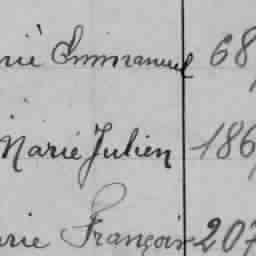 rié Emmanuel 68
Marie Julien 186
rie François 207